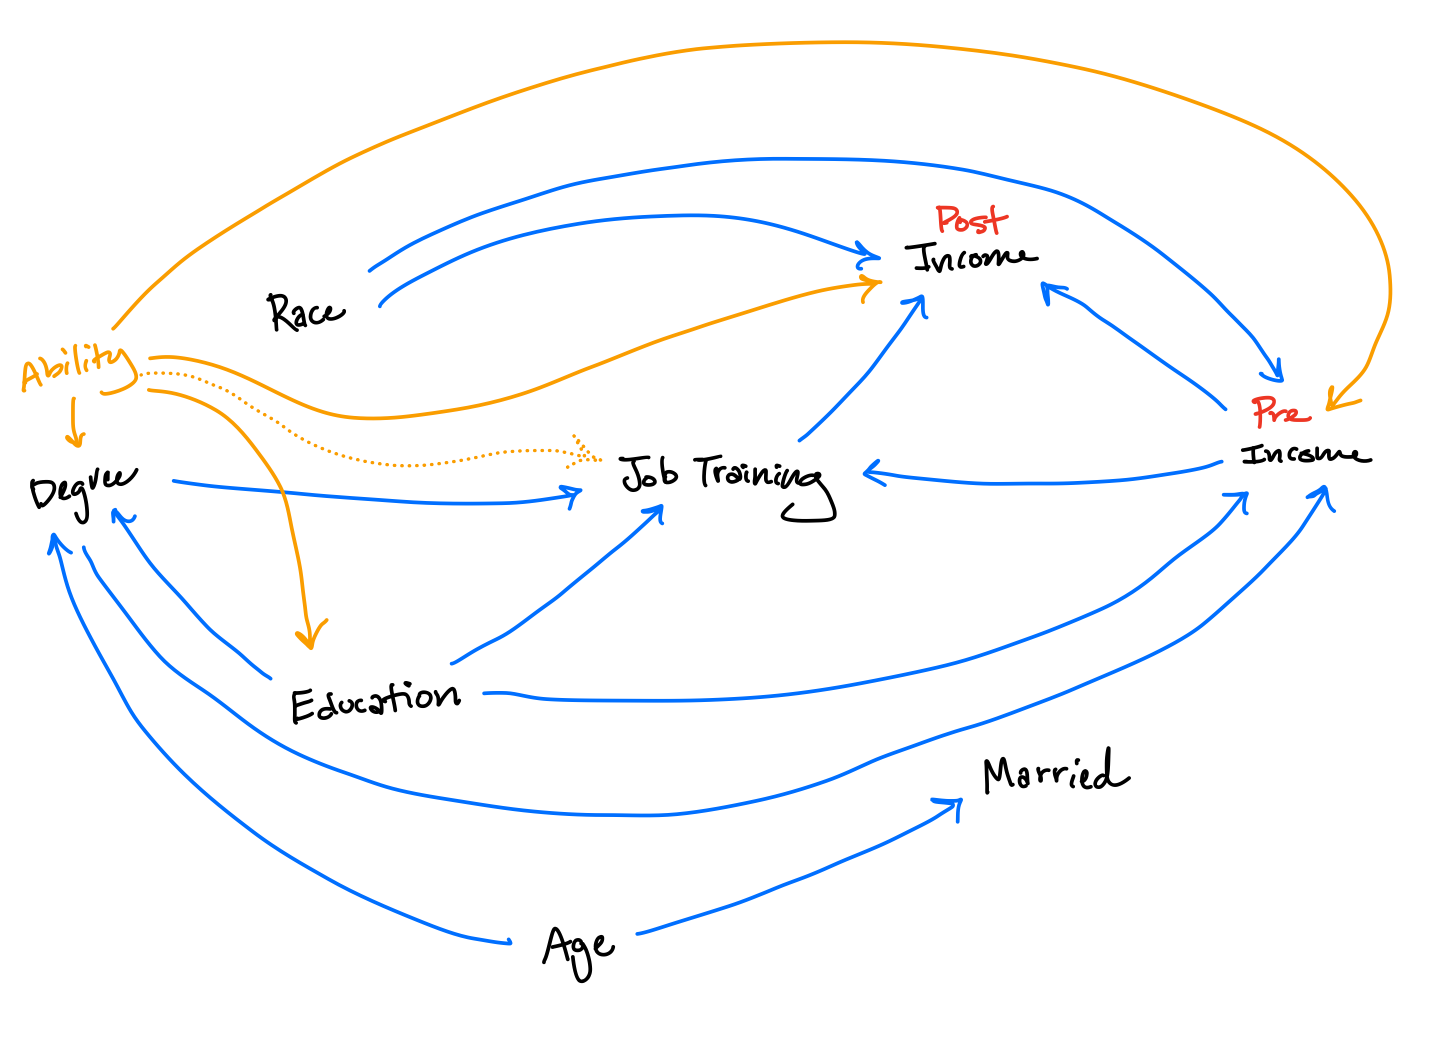 Post
Income
Race
Ability
Pre
Income
Degree
Job Training
Education
Married
Age